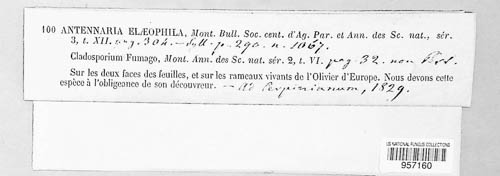 100 ANTENNARIA ELÆOPHILA, Mont. Bull. Soc. cent. d'Ag. Par. et Ann. des Sc. nat., sér.
3, t. XII. pag. 304. — Syll. p. 290. n. 1067.
Cladosporium Fumago, Mont. Ann. des Sc. nat. sér. 2, t. VI. pag. 32. non
Sur les deux faces des feuilles, et sur les rameaux vivants de l'Olivier d'Europe. Nous devons cette
espèce à l'obligeance de son découvreur. — Ad Perpinianum, 1829.
US NATIONAL FUNGUS COLLECTIONS
957160